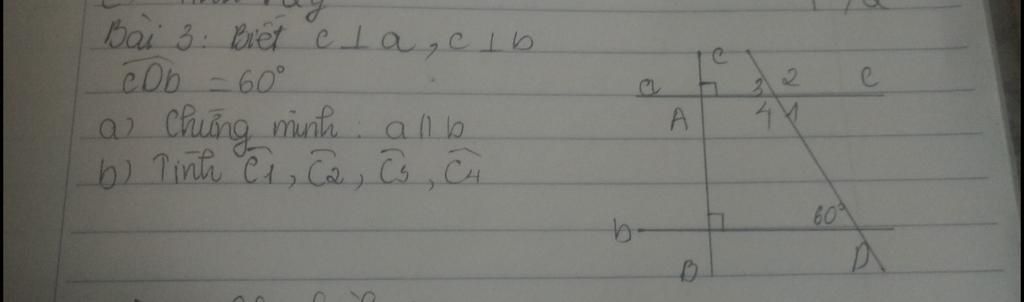 Bài 3: Biết c⊥a, c⊥b
cDb = 60°
a) Chứng minh: a∥b
b) Tính C1, C2, C3, C4
c
a 3 2 c
A 4 1
60°
b
B D